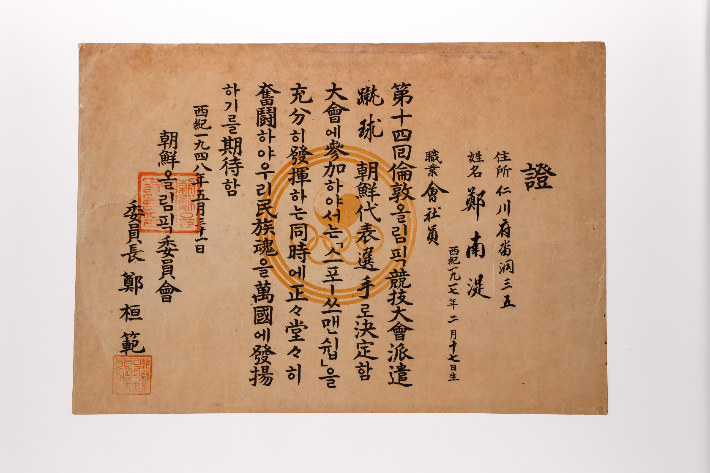 證
住所 仁川府畓洞三五
姓名 鄭南湜
西紀一九一七年二月十七日生
職業 會社員
第十四回倫敦올림픽競技大會派遣
蹴球 朝鮮代表選手로決定함
大會에參加하야서는「스포ー쓰맨쉽」을
充分히發揮하는同時에正々堂々히
奮鬪하야우리民族魂을萬國에發揚
하기를期待함
西紀一九四八年五月 十一日
朝鮮올림픽委員會
委員長 鄭桓範